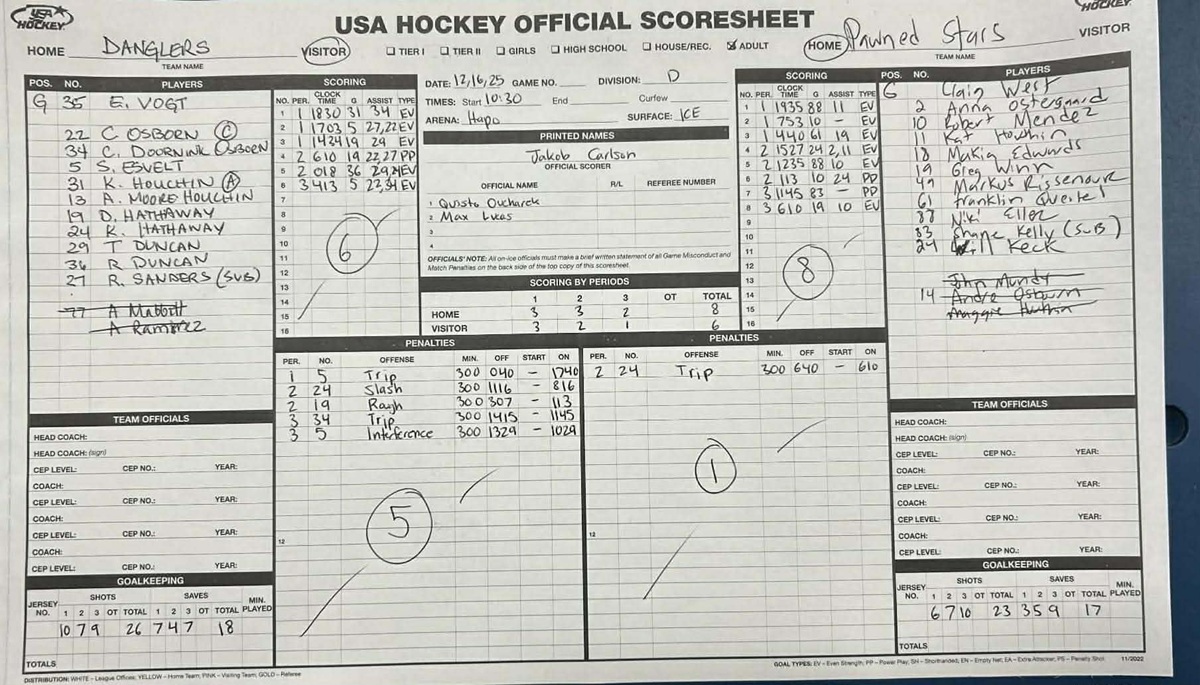 USA HOCKEY
USA HOCKEY OFFICIAL SCORESHEET
HOCKEY
HOME DANGLERS VISITOR
TEAM NAME
☐ TIER I ☐ TIER II ☐ GIRLS ☐ HIGH SCHOOL ☐ HOUSE/REC. ☒ ADULT
HOME Pawned Stars VISITOR
TEAM NAME
POS. NO. PLAYERS
G 35 E. VOGT
22 C OSBORN C
34 C. DOORNINK OSBORN
5 S. ESVELT
31 K. HOUCHIN A
13 A. MOORE HOUCHIN
19 D. HATHAWAY
24 K. HATHAWAY
29 T DUNCAN
36 R DUNCAN
27 R. SANDERS (SUB)
77 A Mabbott
A Ramirez
SCORING
NO. PER. CLOCK TIME G ASSIST TYPE
1 1 1830 31 34 EV
2 1 1703 5 27,22 EV
3 1 1434 19 29 EV
4 2 610 19 22,27 PP
5 2 018 36 29,24 EV
6 3 413 5 22,34 EV
7
8
9
10
11
12
13
14
15
16
6
DATE: 12,16,25 GAME NO. DIVISION: D
TIMES: Start 10:30 End Curfew
ARENA: Hapo SURFACE: ICE
PRINTED NAMES
Jakob Carlson
OFFICIAL SCORER
OFFICIAL NAME R/L REFEREE NUMBER
1 Quisto Oucharek
2 Max Lucs
3
4
OFFICIALS' NOTE: All on-ice officials must make a brief written statement of all Game Misconduct and
Match Penalties on the back side of the top copy of this scoresheet.
SCORING BY PERIODS
1 2 3 OT TOTAL
HOME 3 3 2 8
VISITOR 3 2 1 6
SCORING
NO. PER. CLOCK TIME G ASSIST TYPE
1 1 1935 88 11 EV
2 1 753 10 - EV
3 1 440 61 19 EV
4 2 1527 24 2,11 EV
5 2 1235 88 10 EV
6 2 113 10 24 PP
7 3 1145 83 - PP
8 3 610 19 10 EV
9
10
11
12
13
14
15
16
8
POS. NO. PLAYERS
G Clain West
2 Anna Ostergaard
10 Robert Mendez
11 Kat Houchin
18 Makia Edwards
19 Greg Winn
49 Markus Rissenour
61 Franklin Qweitel
88 Niki Eller
83 Shane Kelly (SUB)
24 Will Keck
John Mundy
14 Andre Osburn
Maggie
PENALTIES
PER. NO. OFFENSE MIN. OFF START ON
1 5 Trip 300 040 - 1740
2 24 Slash 300 1116 - 816
2 19 Rough 300 307 - 113
3 34 Trip 300 1415 - 1145
3 5 Interference 300 1329 - 1029
12
5
PENALTIES
PER. NO. OFFENSE MIN. OFF START ON
2 24 Trip 300 640 - 610
12
1
TEAM OFFICIALS
HEAD COACH:
HEAD COACH: (sign)
CEP LEVEL: CEP NO.: YEAR:
COACH:
CEP LEVEL: CEP NO.: YEAR:
COACH:
CEP LEVEL: CEP NO.: YEAR:
COACH:
CEP LEVEL: CEP NO.: YEAR:
GOALKEEPING
JERSEY NO. SHOTS SAVES MIN. PLAYED
1 2 3 OT TOTAL 1 2 3 OT TOTAL
10 7 9 26 7 4 7 18
TOTALS
TEAM OFFICIALS
HEAD COACH:
HEAD COACH: (sign)
CEP LEVEL: CEP NO.: YEAR:
COACH:
CEP LEVEL: CEP NO.: YEAR:
COACH:
CEP LEVEL: CEP NO.: YEAR:
COACH:
CEP LEVEL: CEP NO.: YEAR:
GOALKEEPING
JERSEY NO. SHOTS SAVES MIN. PLAYED
1 2 3 OT TOTAL 1 2 3 OT TOTAL
6 7 10 23 3 5 9 17
TOTALS
DISTRIBUTION: WHITE – League Offices; YELLOW – Home Team; PINK – Visiting Team; GOLD – Referee
GOAL TYPES: EV – Even Strength, PP – Power Play, SH – Shorthanded, EN – Empty Net, EA – Extra Attacker, PS – Penalty Shot 11/2022